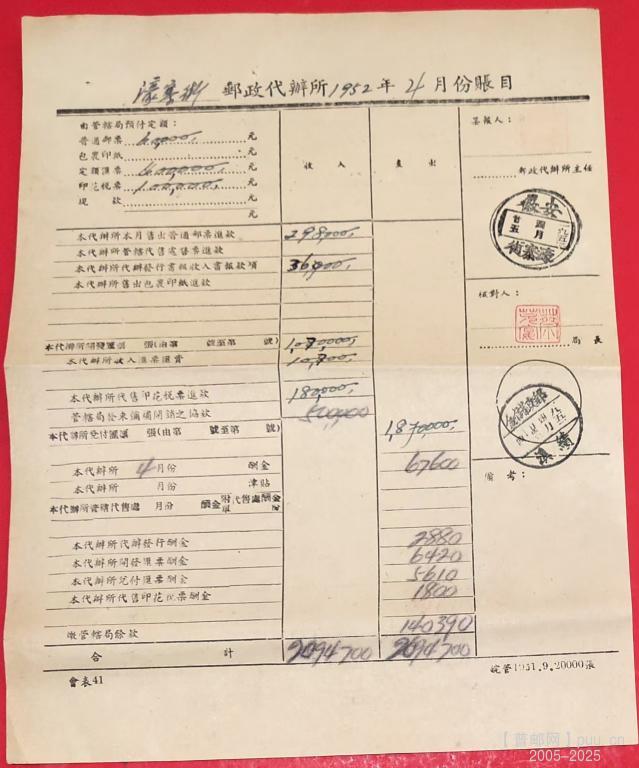 濠寨街 郵政代辦所1952年 4月份賬目
由管轄局預付定額：
普通郵票 60,000. 元
包裹印紙 元
定額滙票 600,000. 元
印花稅票 100,000. 元
現款 元
元
收入
支出
本代辦所本月售出普通郵票進款 298,000.
本代辦所管轄代售處售票進款
本代辦所代辦發行書報收入書報款項 36,000.
本代辦所售出包裹印紙進款
本代辦所開發滙票 張(由第 號至第 號) 1,070,000.
本代辦所收入滙票滙費 10,700.
本代辦所代售印花稅票進款 180,000.
管轄局發來彌補開銷之協款 500,000
本代辦所兌付滙票 張(由第 號至第 號) 1,870,000.
本代辦所 4月份 酬金 67600
本代辦所 月份 津貼
本代辦所管轄代售處 月份
本代辦所代辦發行酬金 2880
本代辦所開發滙票酬金 6420
本代辦所兌付滙票酬金 5610
本代辦所代售印花稅票酬金 1800
繳管轄局餘款 140390
合計 2094700 2094700
會表41
皖管1951.9.20000張
具報人：
郵政代辦所主任
安徽
濠寨街
核對人：
局長
備考：
【普邮网】puu.cn
2005-2025